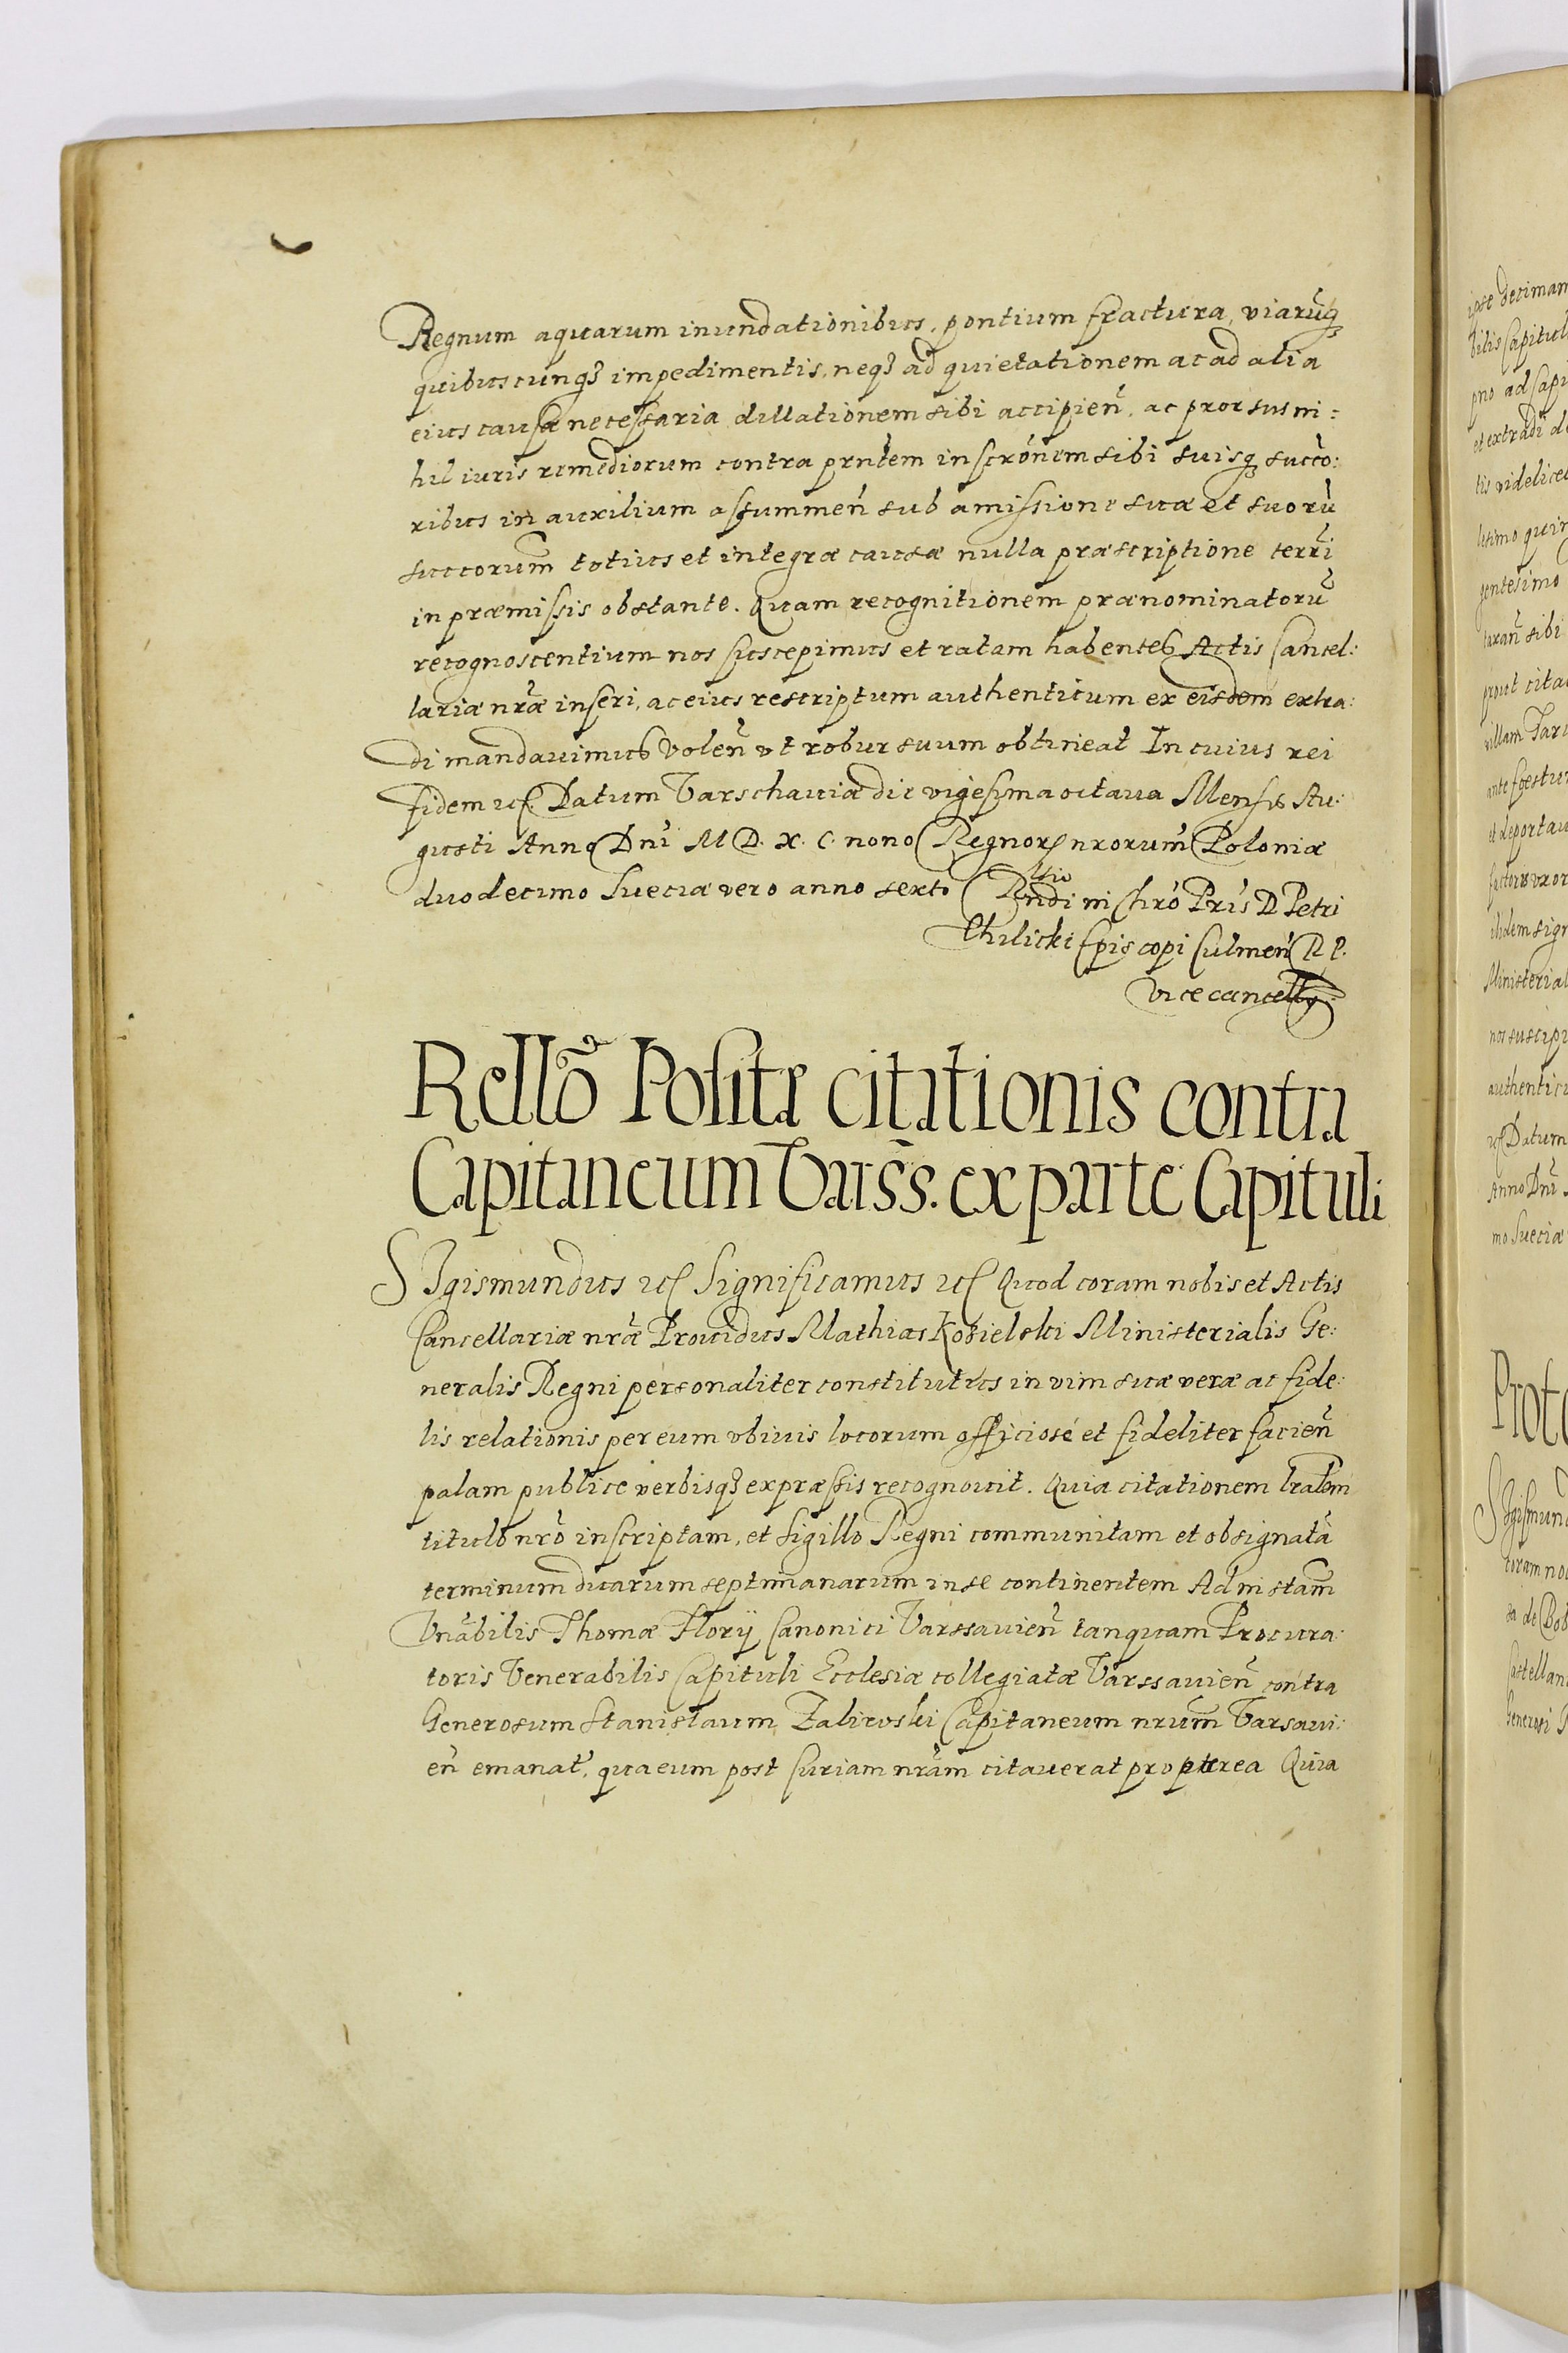 Regnum aquarum inundationibus, pontium fractura, viarũq;
quibuscunq; impedimentis, neq; ad quietationem ac ad alia
eius causæ necessaria dillationem sibi accipien̄, ac prorsus ni:
hil iuris remediorum contra prn̄tem inscrōnem sibi suisq; succō:
ribus in auxilium assummen̄ sub amissione suæ et suorū
succorum̄ totius et integræ causæ nulla præscriptione terrī
in præmissis obstante. Quam recognitionem prænominatorū
recognoscentium nos suscepimus et ratam habentes Actis Cancel:
lariæ nr̄æ inseri, ac eius rescriptum authenticum ex eisdem extra:
di mandauimus volen̄ vt robur suum obtineat In cuius rei
fidem etc. Datum Varschauiæ die vigesima octaua Mensis Au:
gusti Anno Dnī M D. X. C. nono Regnorum nrorum̄ Poloniæ
duodecimo Sueciæ vero anno sexto
Rn̄di in Chr̄o Pr̄is D Petri
Tilicki Episcopi Culmen̄ R P.
Vicecancell
Rellō Positæ citationis contra
Capitaneum Varss̄. ex parte Capituli
Sigismundus etc Significamus etc Quod coram nobis et Actis
Cancellariæ nr̄æ Prouidus Mathias Kosielski Ministerialis Ge:
neralis Regni personaliter constitutus in vim suæ veræ ac fide:
lis relationis per eum vbiuis locorum officiosé et fideliter facien̄
palam publice verbisq; expræssis recognouit. Quia citationem lralem
titulo nrō inscriptam, et sigillo Regni communitam et obsignatā
terminum duarum septimanarum in se continentem Ad instam̄
Vnābilis Thomæ Florij Canonici Varssauien̄ tanquam Procura:
toris Venerabilis Capituli Ecclesiæ collegiatæ Varssauien̄ contra
Generosum Stanislaum Zaliwski Capitaneum nrum̄ Varsaui:
en̄ emanat̄, qua eum post Curiam nrām citauerat propterea Quia